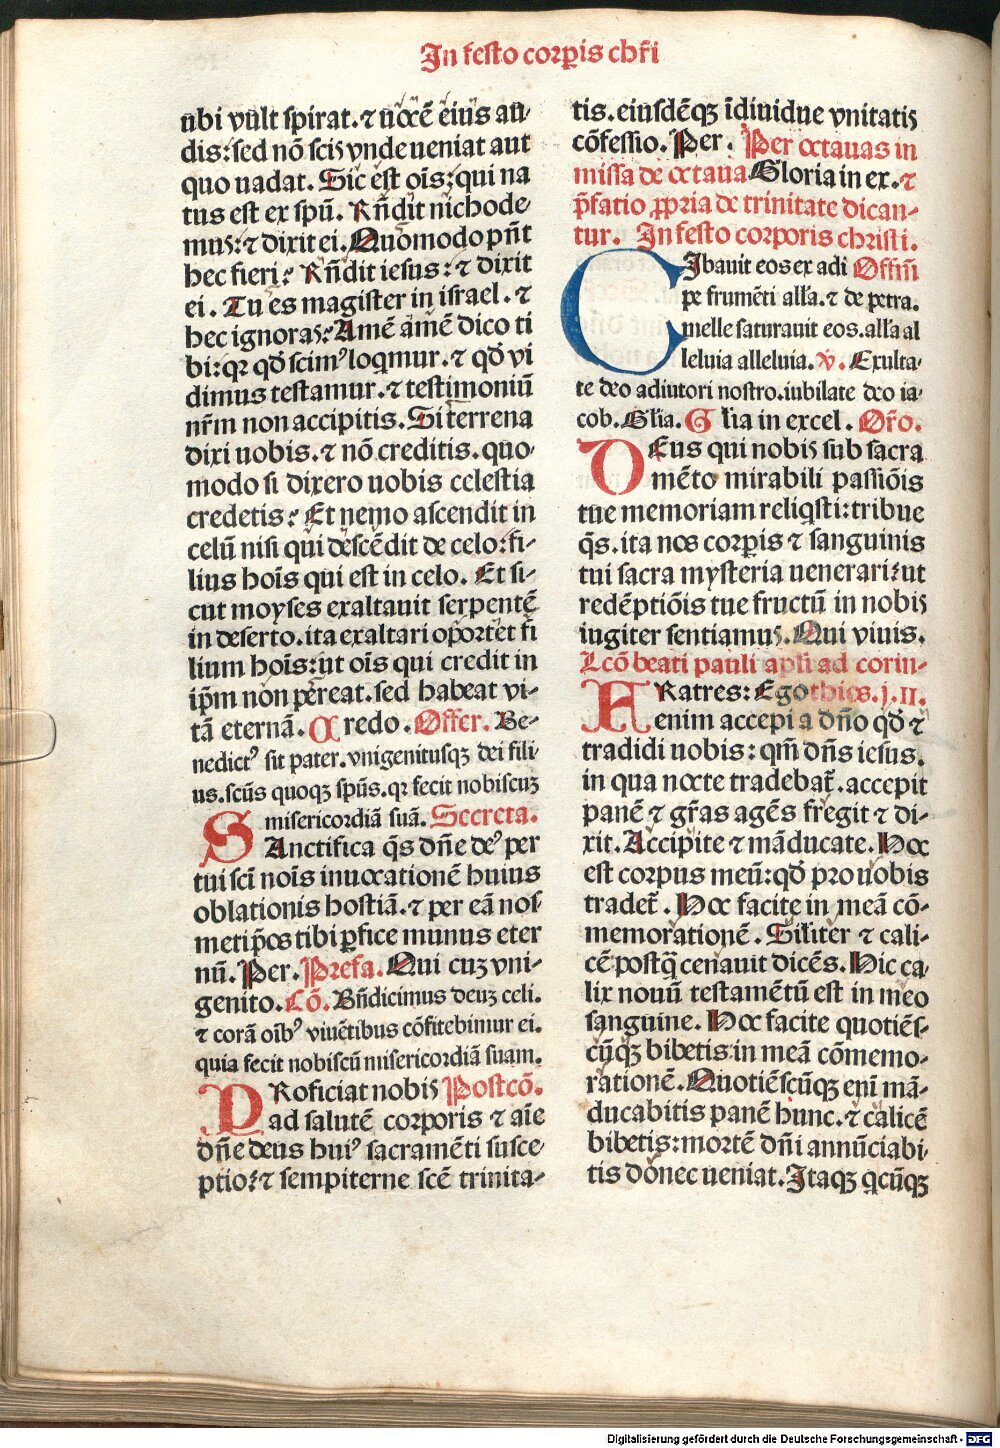 In festo corꝑis chr̄i
ubi vult spirat. ⁊ uocē eius au-
dis: sed nō scis vnde ueniat aut
quo uadat. Sic est oīs: qui na
tus est ex spū. Rn̄dit nichode-
mus: ⁊ dixit ei. Quomodo pn̄t
hec fieri? Rn̄dit iesus: ⁊ dixit
ei. Tu es magister in israel. ⁊
hec ignoras? Amē amē dico ti
bi: qꝛ qd̄ scimꝰ loqmur. ⁊ qd̄ vi
dimus testamur. ⁊ testimoniū
nr̄m non accipitis. Si terrena
dixi uobis. ⁊ nō creditis. quo-
modo si dixero uobis celestia
credetis? Et nemo ascendit in
celū nisi qui descēdit de celo: fi-
lius hoīs qui est in celo. Et si-
cut moyses exaltauit serpentē
in deserto. ita exaltari oportet fi
lium hoīs: ut oīs qui credit in
ip̄m non pereat. sed habeat vi-
tā eternā. Credo. Offer. Be-
nedictꝰ sit pater. vnigenitusqꝫ dei fili
us. scūs quoqꝫ spūs. qꝛ fecit nobiscuꝫ
misericordiā suā. Secreta.
SAnctifica q̄s dn̄e deꝰ per
tui scī noīs inuocationē huius
oblationis hostiā. ⁊ per eā nos
metip̄os tibi ꝑfice munus eter
nū. Per. Prefa. Qui cuꝫ vni-
genito. Cō. Bn̄dicimus deuꝫ celi.
⁊ corā oībꝰ viuētibus cōfitebimur ei.
quia fecit nobiscū misericordiā suam.
PRoficiat nobis Postcō.
ad salutē corporis ⁊ aīe
dn̄e deus huiꝰ sacramēti susce
ptio: ⁊ sempiterne scē trinita-
tis. eiusdēqꝫ īdiuidue vnitatis
cōfessio. Per. Per octauas in
missa de octaua Gloria in ex. ⁊
p̄fatio ꝓpria de trinitate dican-
tur. In festo corporis christi.
CIbauit eos ex adi Offm̄
pe frumēti alla. ⁊ de petra.
melle saturauit eos. alla al
leluia alleluia. v. Exulta-
te deo adiutori nostro. iubilate deo ia-
cob. Glia. Glia in excel. Oro.
DEus qui nobis sub sacra
mēto mirabili passiōis
tue memoriam reliqsti: tribue
q̄s. ita nos corꝑis ⁊ sanguinis
tui sacra mysteria uenerari: ut
redēptiōis tue fructū in nobis
iugiter sentiamus. Qui viuis.
Lcō beati pauli apli ad corin-
FRatres: Ego thios. j. II.
enim accepi a dn̄o qd̄ ⁊
tradidi uobis: qm̄ dn̄s iesus.
in qua nocte tradebat̄. accepit
panē ⁊ gr̄as agēs fregit ⁊ di-
xit. Accipite ⁊ māducate. Hoc
est corpus meū: qd̄ pro uobis
tradet̄. Hoc facite in meā cō-
memorationē. Siliter ⁊ cali-
cē postq̄ cenauit dicēs. Hic ca
lix nouū testamētū est in meo
sanguine. Hoc facite quotiēs-
cūqꝫ bibetis: in meā cōmemo-
rationē. Quotiēscūqꝫ eni mā-
ducabitis panē hunc. ⁊ calicē
bibetis: mortē dn̄i annūciabi-
tis donec ueniat. Itaqꝫ qcūqꝫ
Digitalisierung gefördert durch die Deutsche Forschungsgemeinschaft - DFG